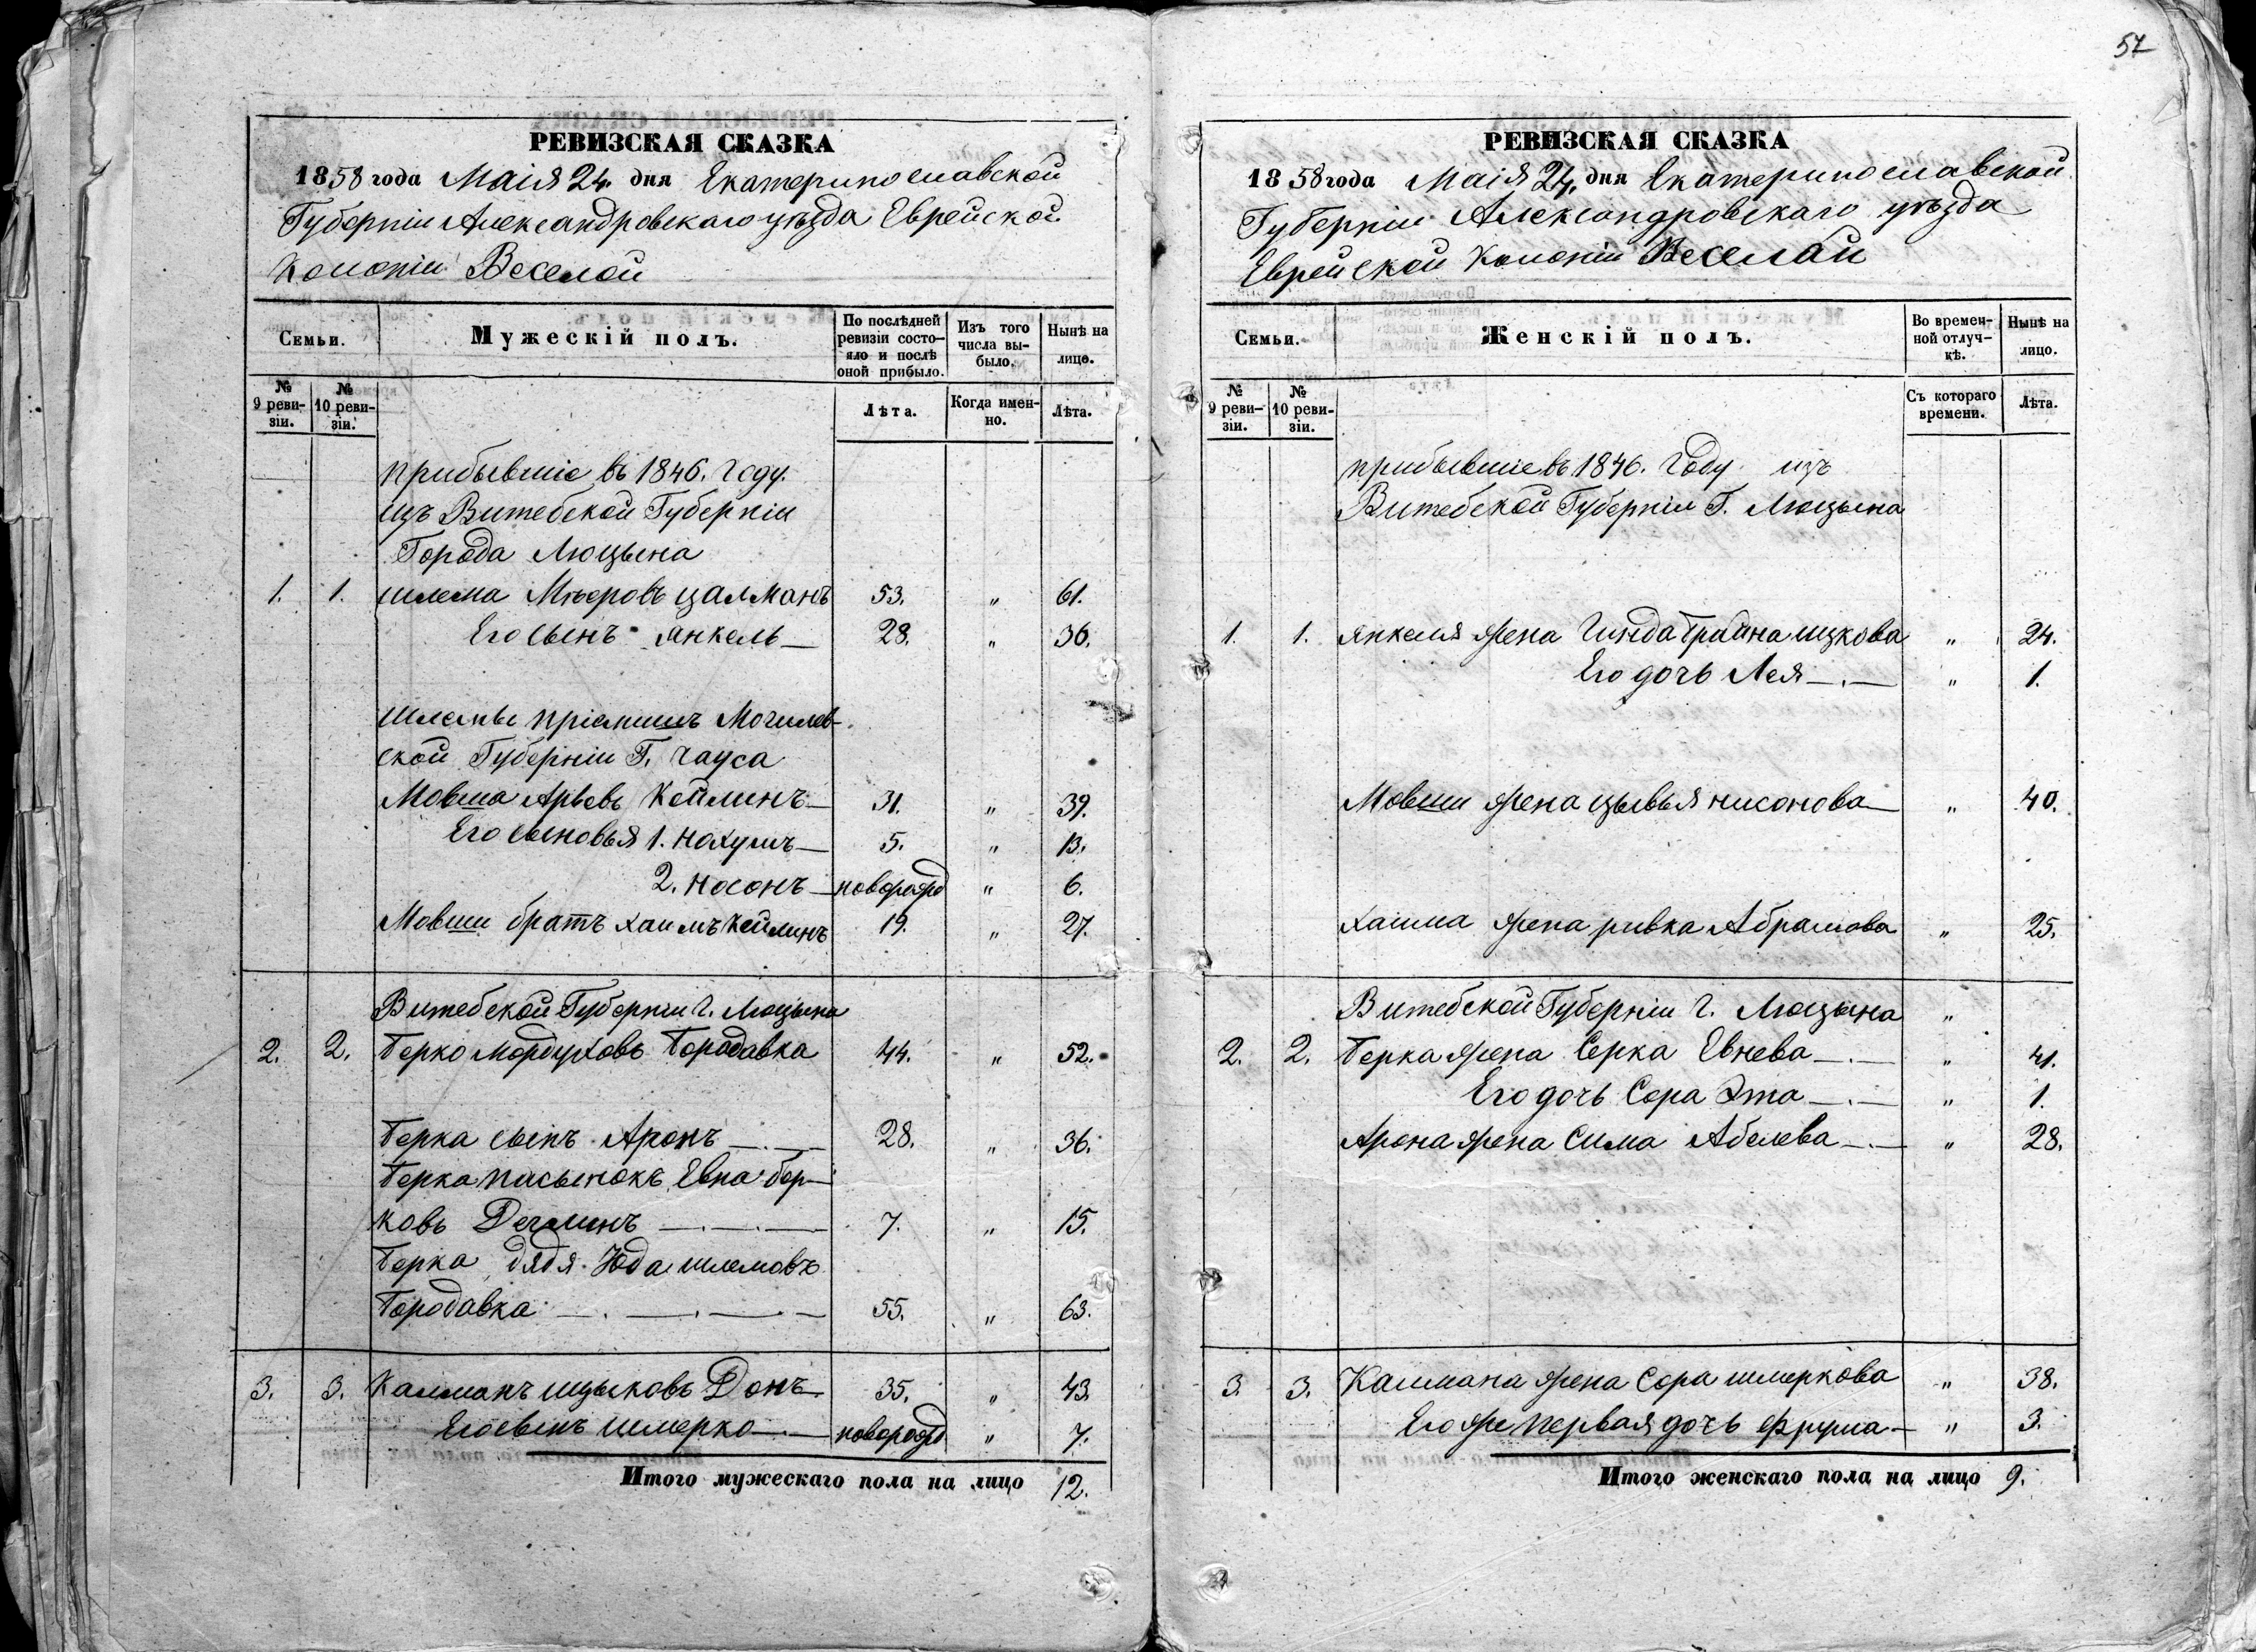 57
РЕВИЗСКАЯ СКАЗКА
1858 года Маія 24. дня Екатеринославской
Губерніи Александровскаго уѣзда Еврейской
Колоніи Веселой
Семьи.
Мужескій полъ.
По послѣдней ревизіи состояло и послѣ оной прибыло.
Изъ того числа выбыло.
Нынѣ на лице.
№ 9 ревизіи.
№ 10 ревизіи.
Лѣта.
Когда именно.
Лѣта.
прибывшіе въ 1846. Году.
изъ Витебской Губерніи
Города Люцына
1. 1. шлема Мѣеровъ цалманъ 53. " 61.
Его сынъ янкель — 28. " 36.
шлемы пріемышъ Могилев-
ской Губерніи Г. Чауса
Мовша Арьевъ Кейлинъ — 31. " 39.
Его сыновья 1. нохумъ — 5. " 13.
2. носонъ — новорожд " 6.
Мовши братъ хаимъ Кейлинъ 19. " 27.
Витебской Губерніи г. Люцына
2. 2. Берко Мордуховъ Бородавка 44. " 52.
Берка сынъ Аронъ — 28. " 36.
Берка пасынокъ Евна бер-
ковъ — 7. " 15.
Берка дядя Юда шлемовъ
Бородавка — 55. " 63.
3. 3. Калманъ ицыковъ Донъ 35. " 43.
Его сынъ шмерко — новорожд " 7.
Итого мужескаго пола на лицо 12.
РЕВИЗСКАЯ СКАЗКА
1858 года Маія 24. дня Екатеринославской
Губерніи Александровскаго уѣзда
Еврейской Колоніи Веселой
Семьи.
Женскій полъ.
Во временной отлучкѣ.
Нынѣ на лицо.
№ 9 ревизіи.
№ 10 ревизіи.
Съ котораго времени.
Лѣта.
прибывшіе въ 1846. Году изъ
Витебской Губерніи Г. Люцына
1. 1. янкеля жена Гинда Грайна ицкова " 24.
Его дочь Лея — " 1.
Мовши жена цывья нисонова — " 40.
хаима жена ривка Абрамова " 25.
Витебской Губерніи г. Люцына "
2. 2. Берка жена Серка Евнева — " 41.
Его дочь Сора Эта — " 1.
Арона жена Сима Абелева — " 28.
3. 3. Калмана жена Сора шмеркова " 38.
Его же первая дочь фрума — " 3.
Итого женскаго пола на лицо 9.